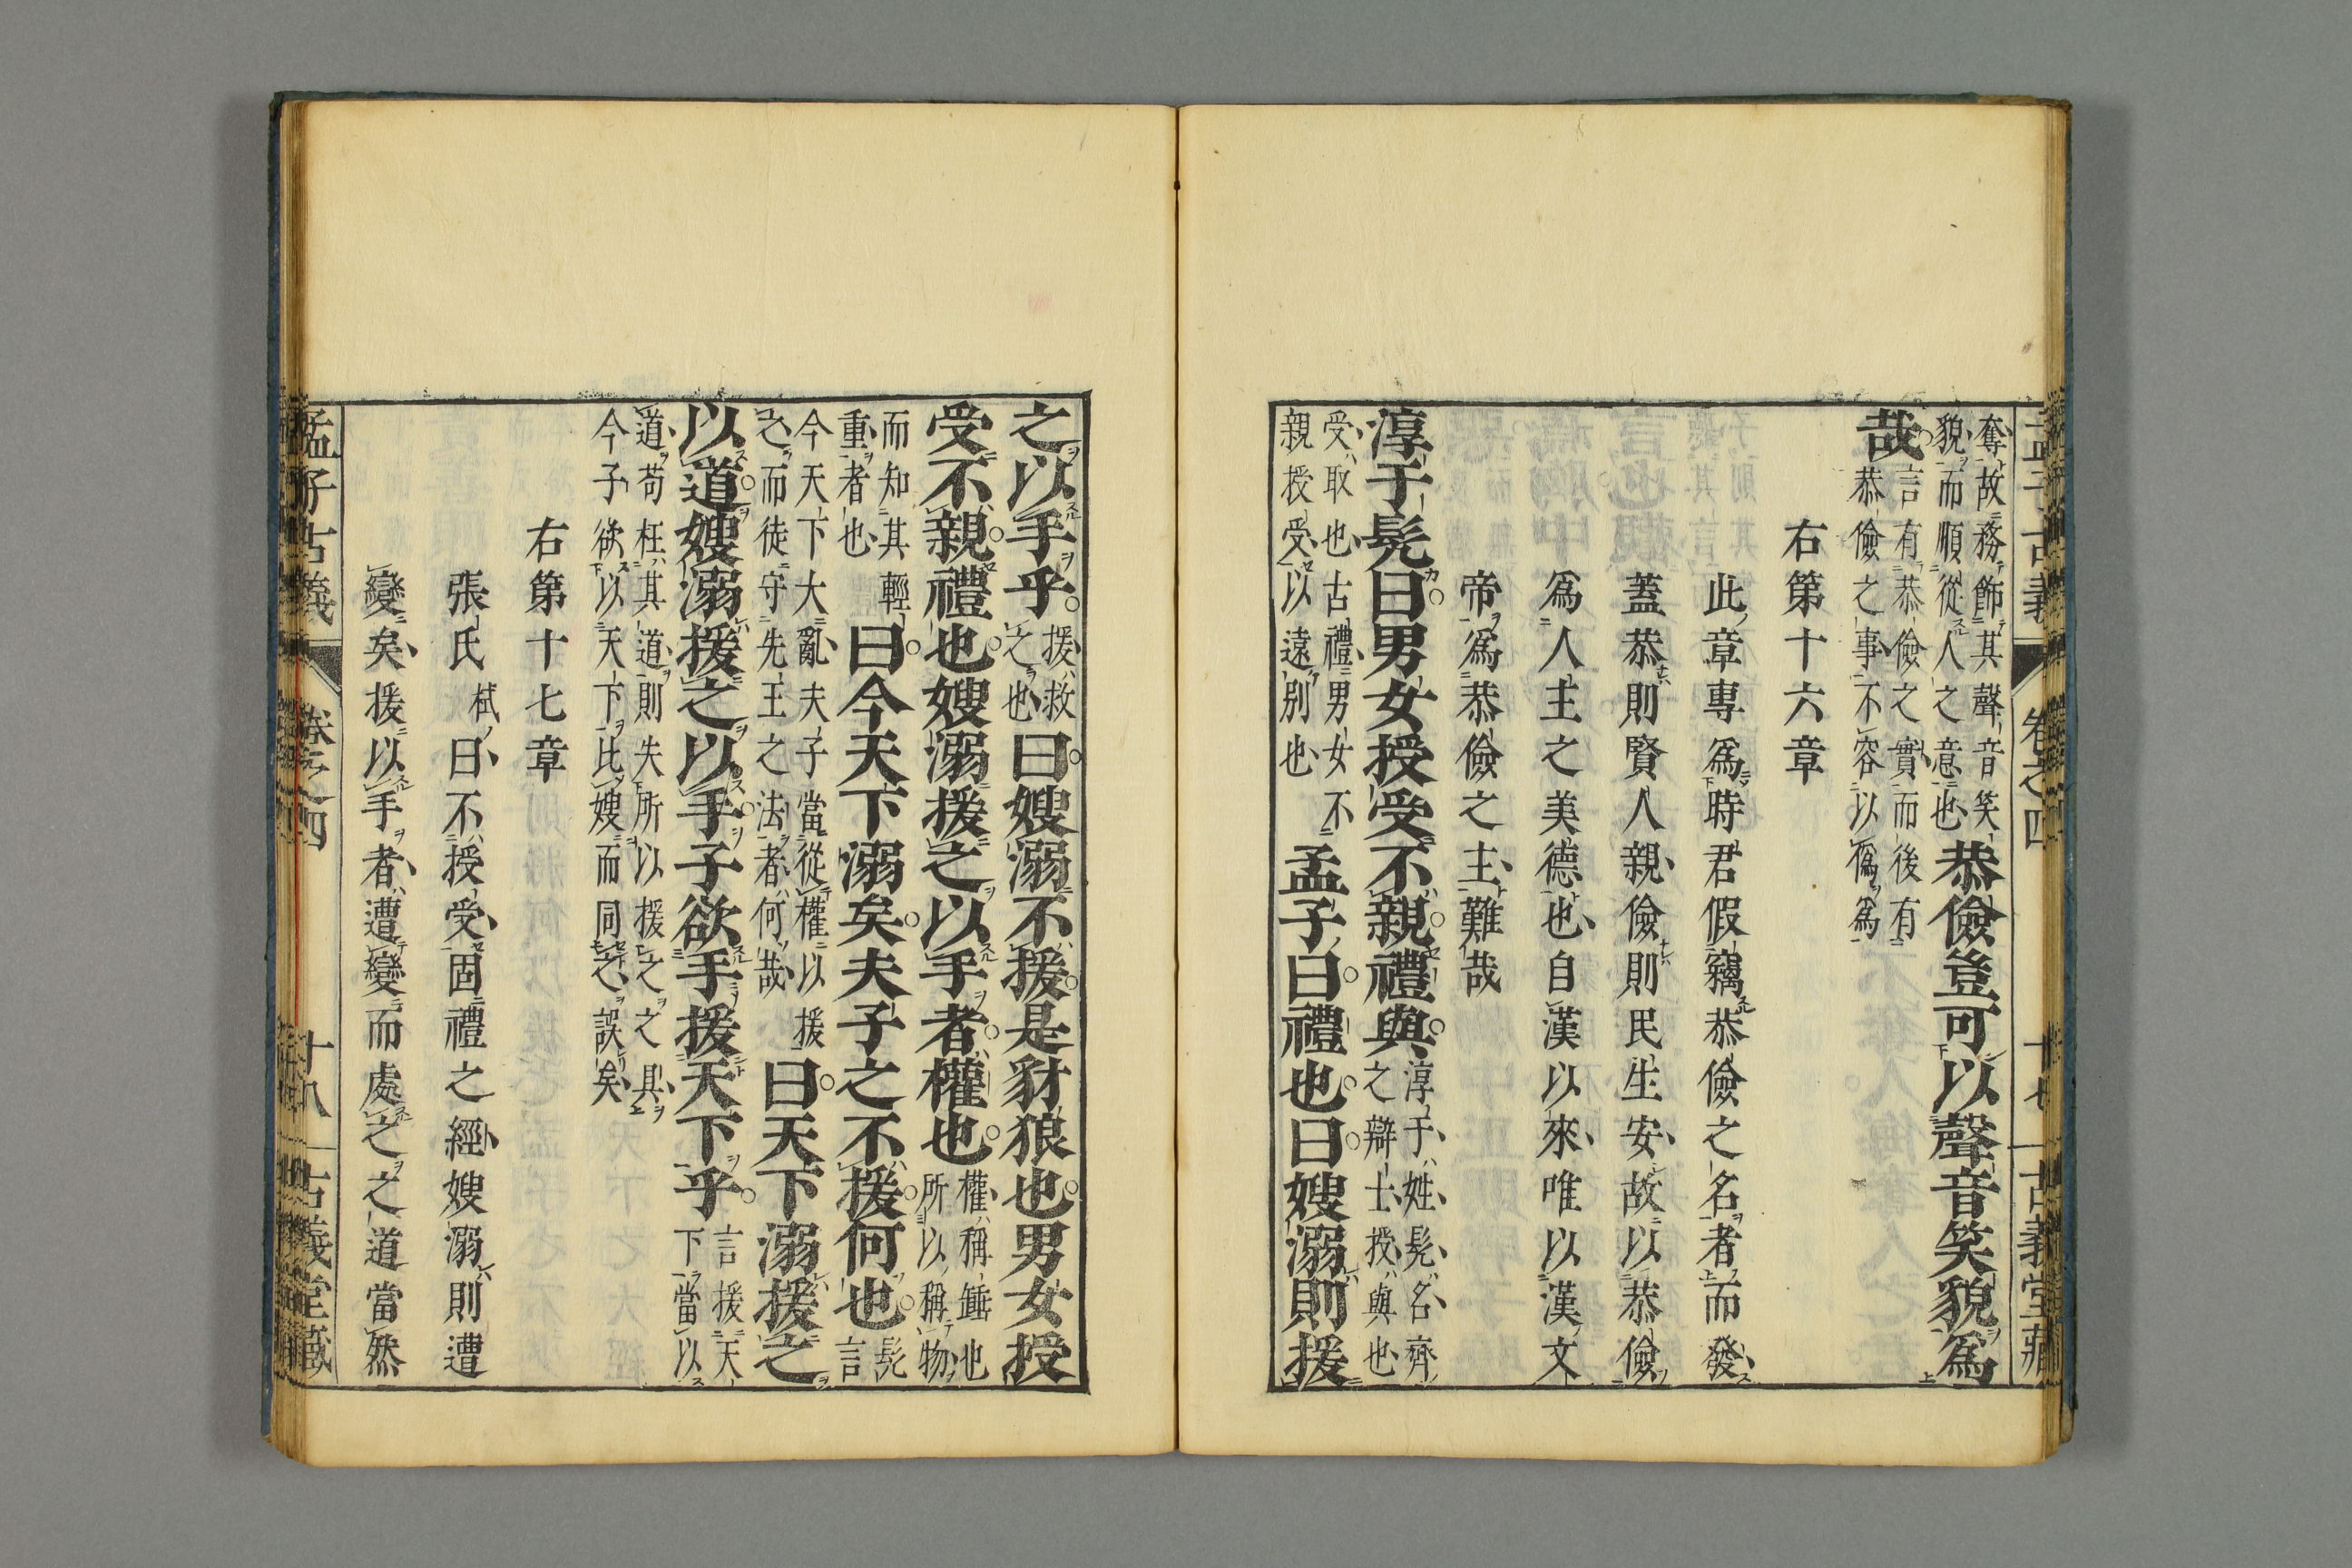 孟子古義 卷之四 十七 古義堂藏
奪故務飾其聲音笑
貌而順從人之意也
恭儉豈可以聲音笑貌爲
哉
言有恭儉之實而後有
恭儉之事不容以僞爲
右第十六章
此章專爲時君假竊恭儉之名者而發
蓋恭則賢人親儉則民生安故以恭儉
爲人主之美德也自漢以來唯以漢文
帝爲恭儉之主難哉
淳于髡曰男女授受不親禮與
淳于姓髡名齊
之辯士授與也
受取也古禮男女不
親授受以遠別也
孟子曰禮也曰嫂溺則援
之以手乎
援救
之也
曰嫂溺不援是豺狼也男女授
受不親禮也嫂溺援之以手者權也
權稱錘也
所以稱物
而知其輕
重者也
曰今天下溺矣夫子之不援何也
髡
言
今天下大亂夫子當從權以援
之而徒守先王之法者何哉
曰天下溺援之
以道嫂溺援之以手子欲手援天下乎
言援天
下當以
道苟枉其道則失所以援之之具
今子欲以天下比嫂而同之誤矣
右第十七章
張氏栻曰不授受固禮之經嫂溺則遭
變矣援以手者遭變而處之之道當然
孟子古義 卷之四 十八 古義堂藏